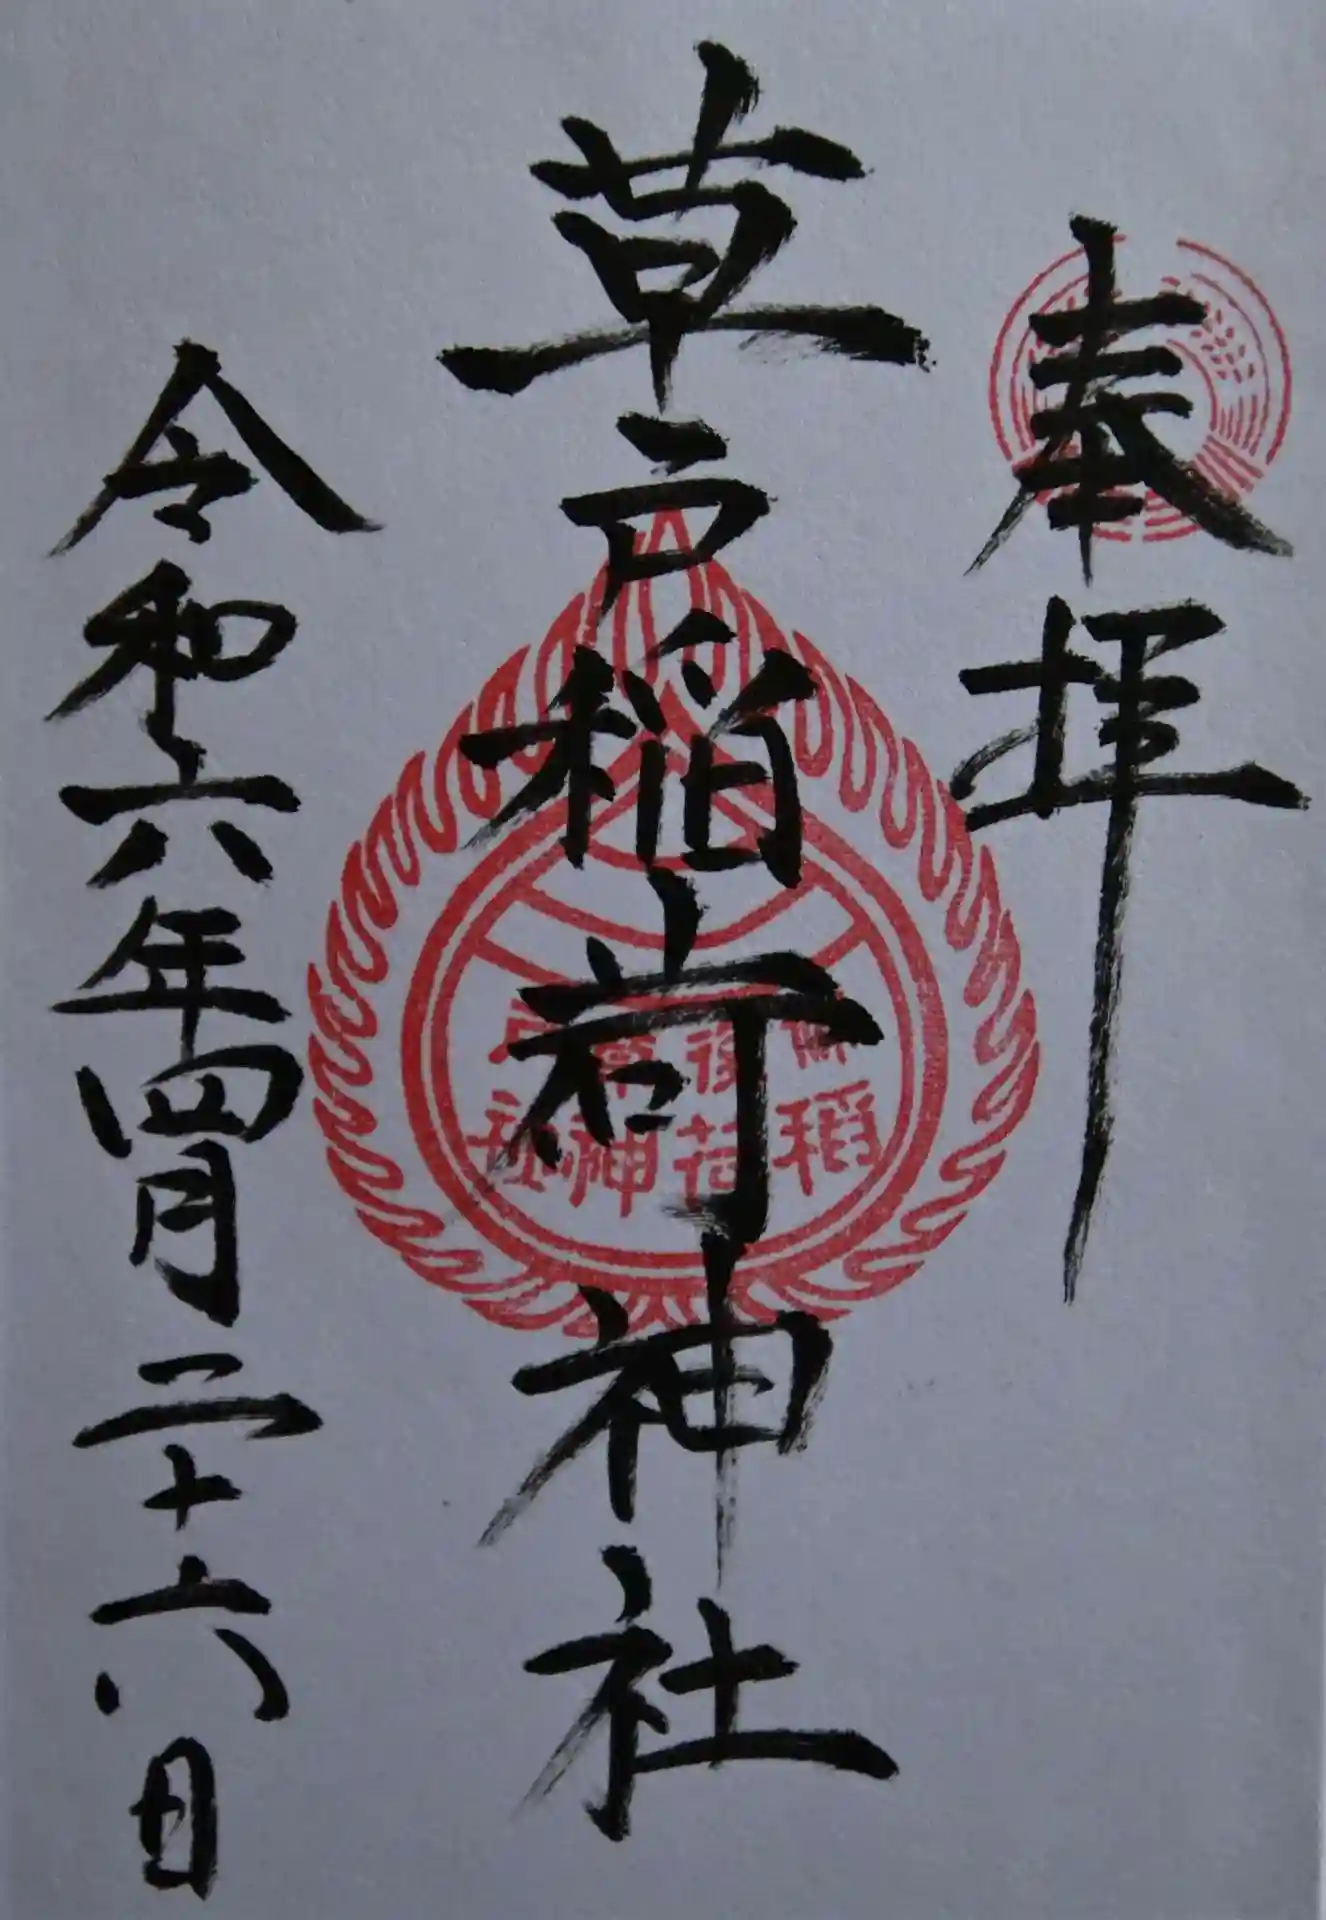 奉拝
草戸稲荷神社
令和六年四月二十六日
稲荷神社